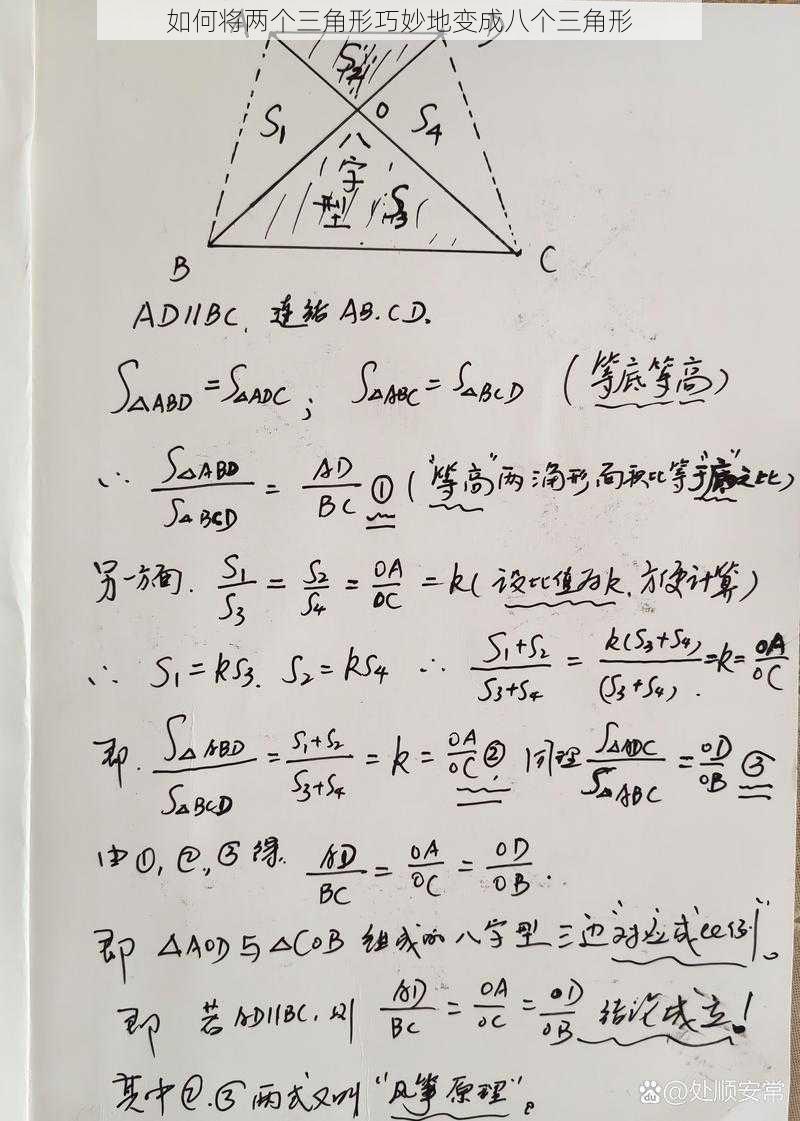 如何将两个三角形巧妙地变成八个三角形
S₂
O
S₁
S₄
八
字
型
S₃
B
C
AD//BC, 连结 AB.CD.
S△ABD = S△ADC ; S△ABC = S△BCD (等底等高)
∴ S△ABD/S△BCD = AD/BC ① ("等高"两三角形面积比等于"底"之比)
另一方面. S₁/S₃ = S₂/S₄ = OA/OC = k (设比值为k, 方便计算)
∴ S₁ = kS₃. S₂ = kS₄ ∴ (S₁+S₂)/(S₃+S₄) = k(S₃+S₄)/(S₃+S₄) = k = OA/OC
即. S△ABD/S△BCD = (S₁+S₂)/(S₃+S₄) = k = OA/OC ② 同理 S△ADC/S△ABC = OD/OB ③
由①,②,③得. AD/BC = OA/OC = OD/OB.
即 △AOD与△COB 组成的八字型三边"对应成比例"。
即 若AD//BC, 则 AD/BC = OA/OC = OD/OB 结论成立!
其中②.③两式又叫"风筝原理"。
Bai du @处顺安常